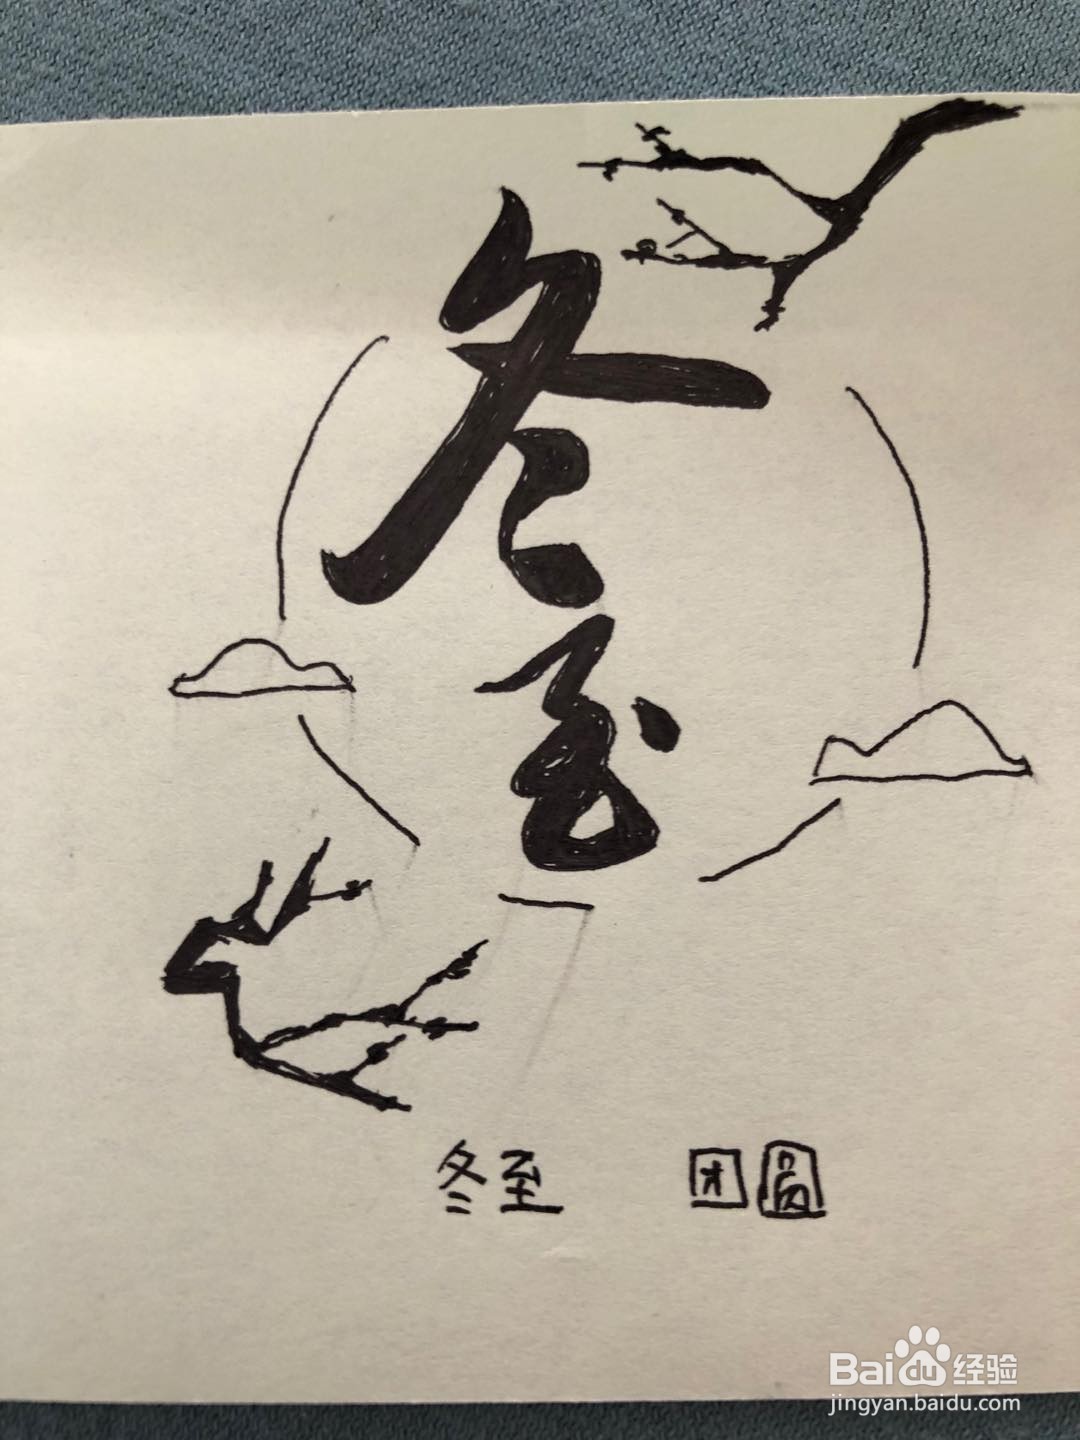 冬至
冬至 团圆
Baidu经验
jingyan.baidu.com